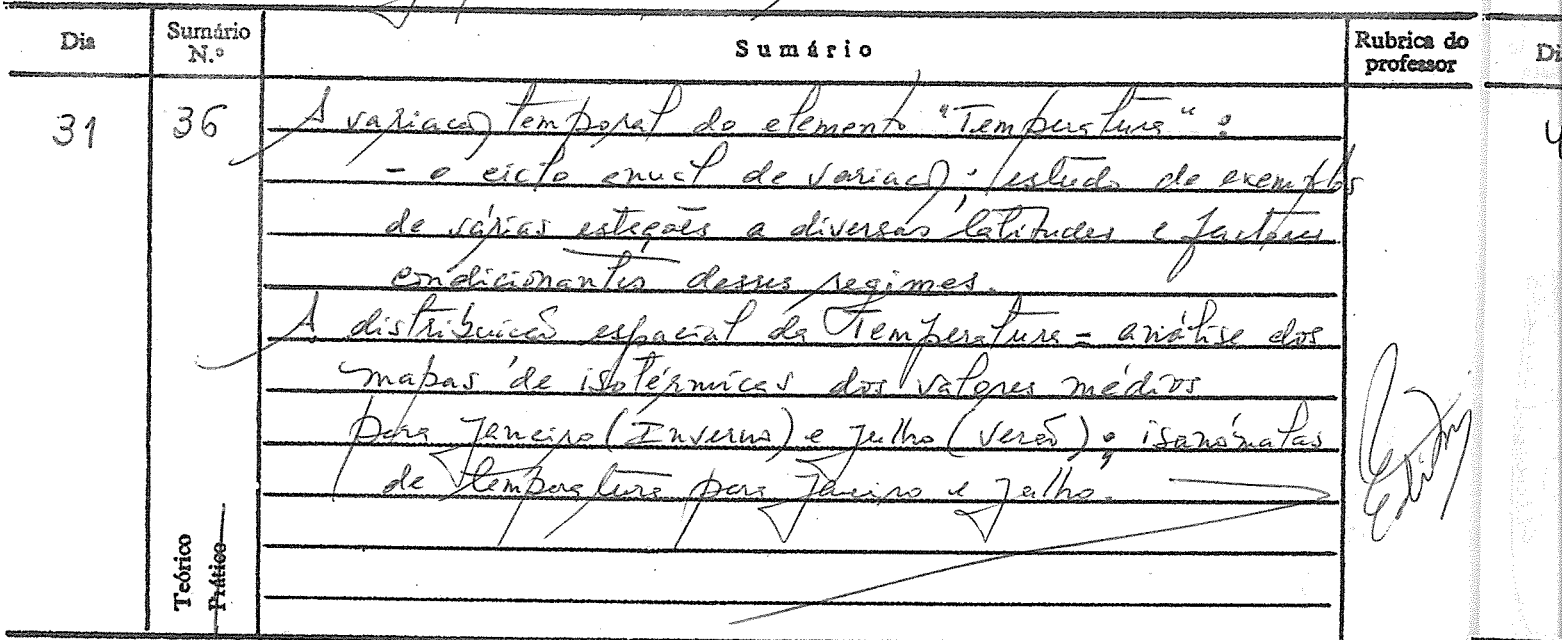 Dia Sumário N.º Sumário Rubrica do professor Di
31 36 A variação temporal do elemento "Temperatura":
- o ciclo anual de variação; estudo de exemplos
de várias estações a diversas latitudes e factores
condicionantes desses regimes.
A distribuição espacial da Temperatura - análise dos
mapas de isotérmicas dos valores médios
para Janeiro (Inverno) e Julho (Verão); isanómalas
de temperatura para Janeiro e Julho.
Teórico
Prático